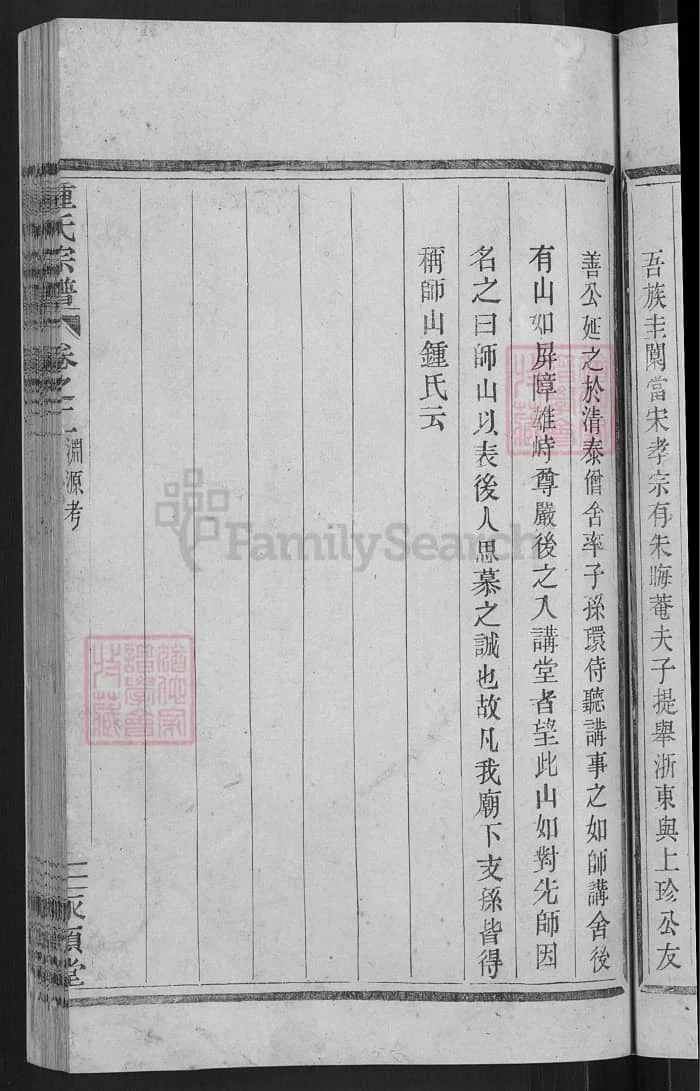 吾族圭閑當宋孝宗有朱晦菴夫子提舉浙東與上珍公友
善公延之於清泰僧舍率子孫環侍聽講事之如師講舍後
有山如屏障雄峙尊嚴後之入講堂者望此山如對先師因
名之曰師山以表後人思慕之誠也故凡我廟下支孫皆得
稱師山鍾氏云
鍾氏宗譜
卷之二
淵源考
二
永順堂
FamilySearch
譜學會
特藏